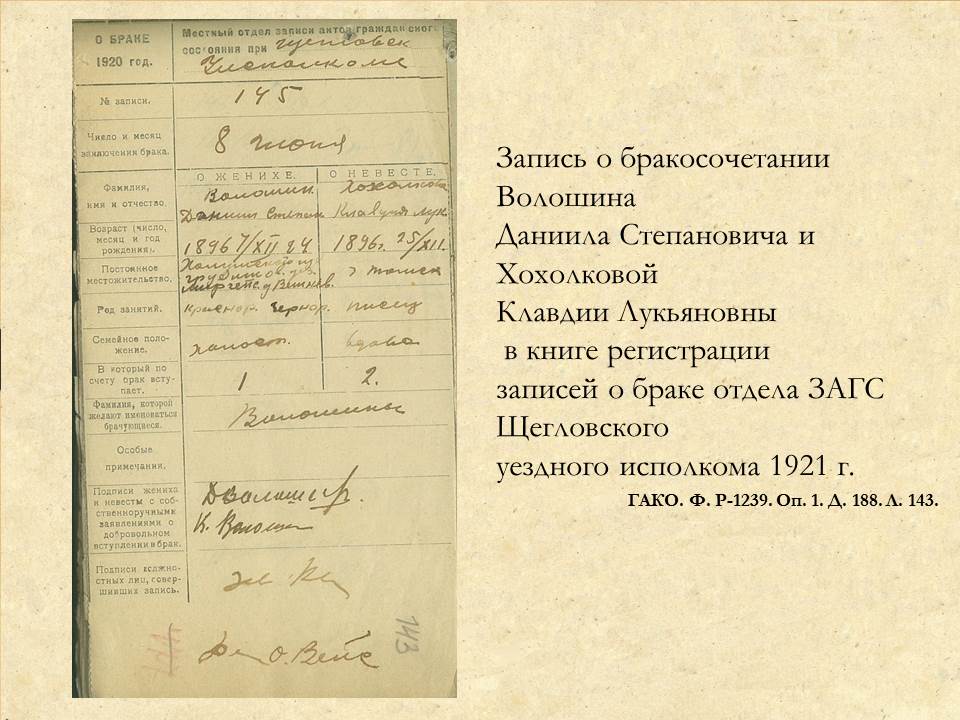 О БРАКЕ
1920 год.
Местный отдел записи актов гражданского
состояния при
№ записи.
145
Число и месяц
заключения брака.
8 июня
О ЖЕНИХЕ. О НЕВЕСТЕ.
Фамилия,
имя и отчество.
Волошин Хохолкова
Даниил Степан Клавдия Лук
Возраст (число,
месяц и год
рождения).
1896 7/XII 24 1896 г. 25/XII.
Постоянное
местожительство.
г Томск
Род занятий.
Чернор. писец
Семейное поло-
жение.
холост. вдова
В который по
счету брак всту-
пает.
1 2.
Фамилия, которой
желают именоваться
брачующиеся.
Волошины
Особые
примечания.
Подписи жениха
и невесты с соб-
ственноручными
заявлениями о
добровольном
вступлении в брак.
ДВолошин
К. Волоши
Подписи должно-
стных лиц, совер-
шивших запись.
О. Вейс
143
Запись о бракосочетании
Волошина
Даниила Степановича и
Хохолковой
Клавдии Лукьяновны
в книге регистрации
записей о браке отдела ЗАГС
Щегловского
уездного исполкома 1921 г.
ГАКО. Ф. Р-1239. Оп. 1. Д. 188. Л. 143.